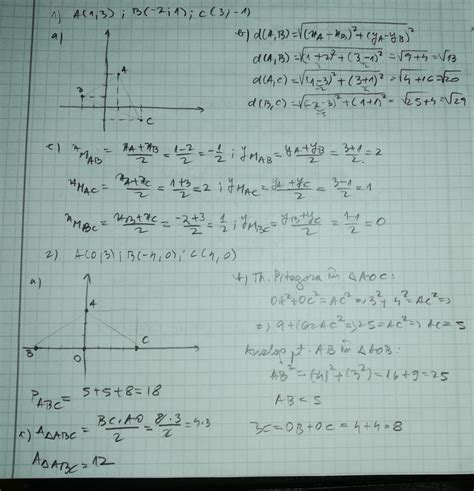 1) A(1,3) ; B(-2;1) ; C(3;-1)
a)
A
B
C
b) d(A,B)=√(x_A-x_B)²+(y_A-y_B)²
d(A,B)=√(1+2)²+(3-1)²=√9+4=√13
d(A,C)=√(1-3)²+(3+1)²=√4+16=√20
d(B,C)=√(-2-3)²+(1+1)²=√25+4=√29
c) x_M_AB=x_A+x_B/2=1-2/2=-1/2 ; y_M_AB=y_A+y_B/2=3+1/2=2
x_M_AC=x_A+x_C/2=1+3/2=2 ; y_M_AC=y_A+y_C/2=3-1/2=1
x_M_BC=x_B+x_C/2=-2+3/2=1/2 ; y_M_BC=y_B+y_C/2=1-1/2=0
2) A(0,3) ; B(-4,0) ; C(4,0)
a)
A
B
O
C
b) Th. Pitagora în ΔAOC:
OA²+OC²=AC²=>3²+4²=AC²=>
=> 9+16=AC²=>25=AC²=>AC=5
Analog pt. AB în ΔAOB:
AB²=(4)²+(3)²=16+9=25
AB=5
BC=OB+OC=4+4=8
P_ABC=5+5+8=18
c) A_ΔABC=BC·AO/2=8·3/2=4·3
A_ΔABC=12